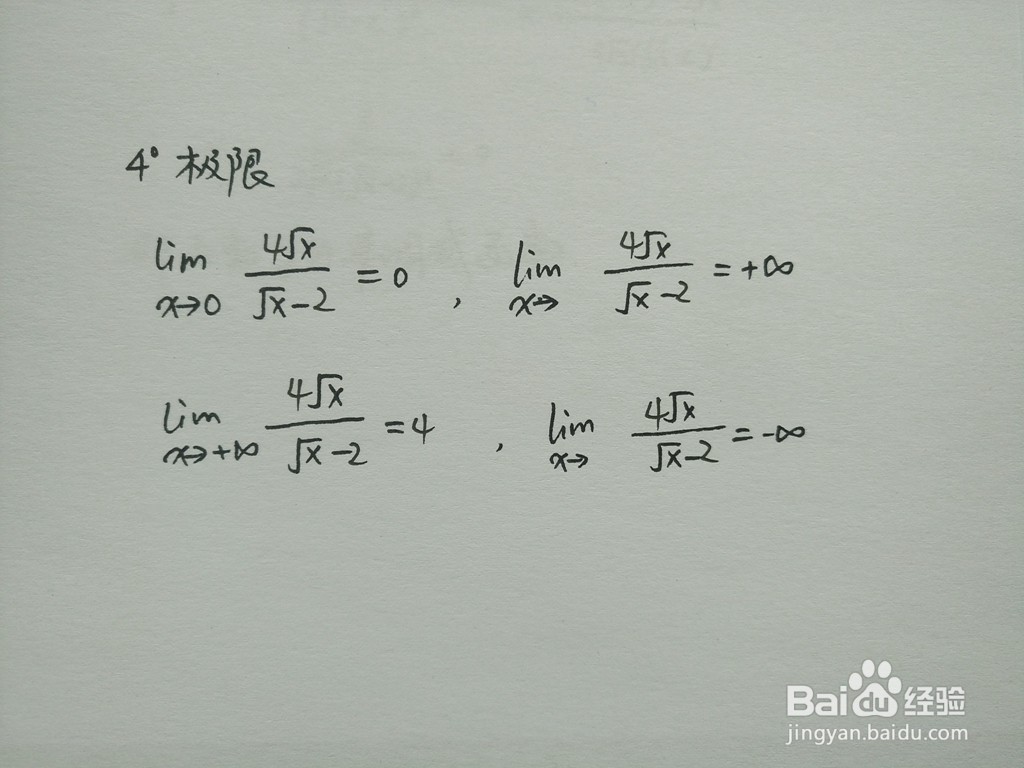 4° 极限
lim x→0 4√x / √x-2 = 0 , lim x→ 4√x / √x-2 = +∞
lim x→+∞ 4√x / √x-2 = 4 , lim x→ 4√x / √x-2 = -∞
Baidu经验
jingyan.baidu.com